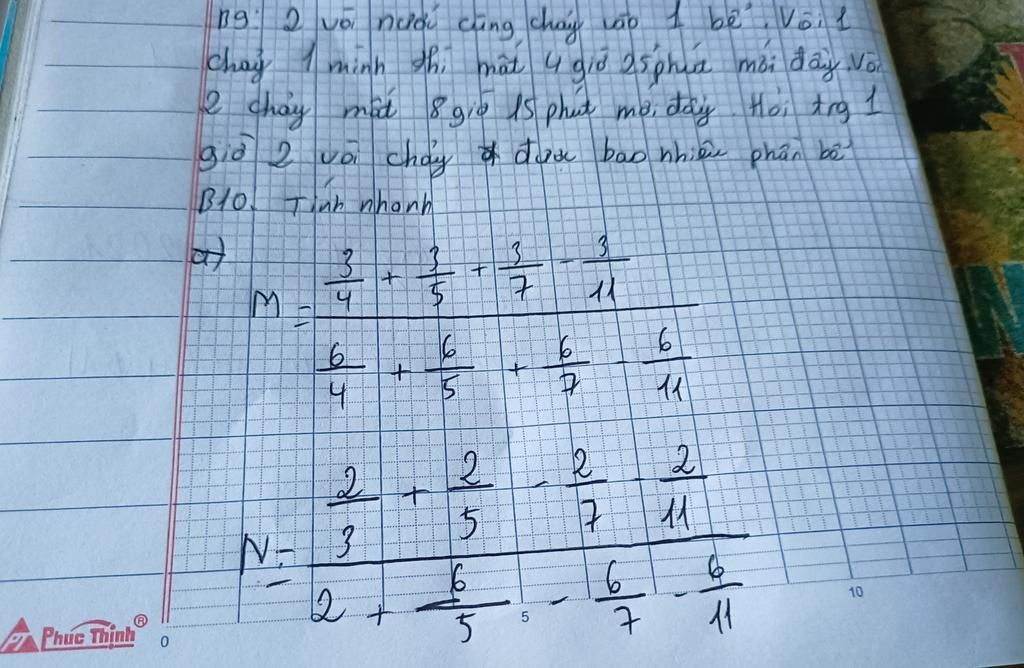 B9: 2 vòi nước cùng chảy vào 1 bể. Vòi 1
chảy 1 mình thì mất 4 giờ 25 phút mới đầy. Vòi
2 chảy mất 8 giờ 15 phút mới đầy. Hỏi trg 1
giờ 2 vòi chảy được bao nhiêu phần bể
B10. Tính nhanh
a)
M = (3/4 + 3/5 + 3/7 - 3/11) / (6/4 + 6/5 + 6/7 - 6/11)
N = (2/3 + 2/5 - 2/7 - 2/11) / (2 + 6/5 - 6/7 - 6/11)
PT Phuc Thịnh ® 0 5 10